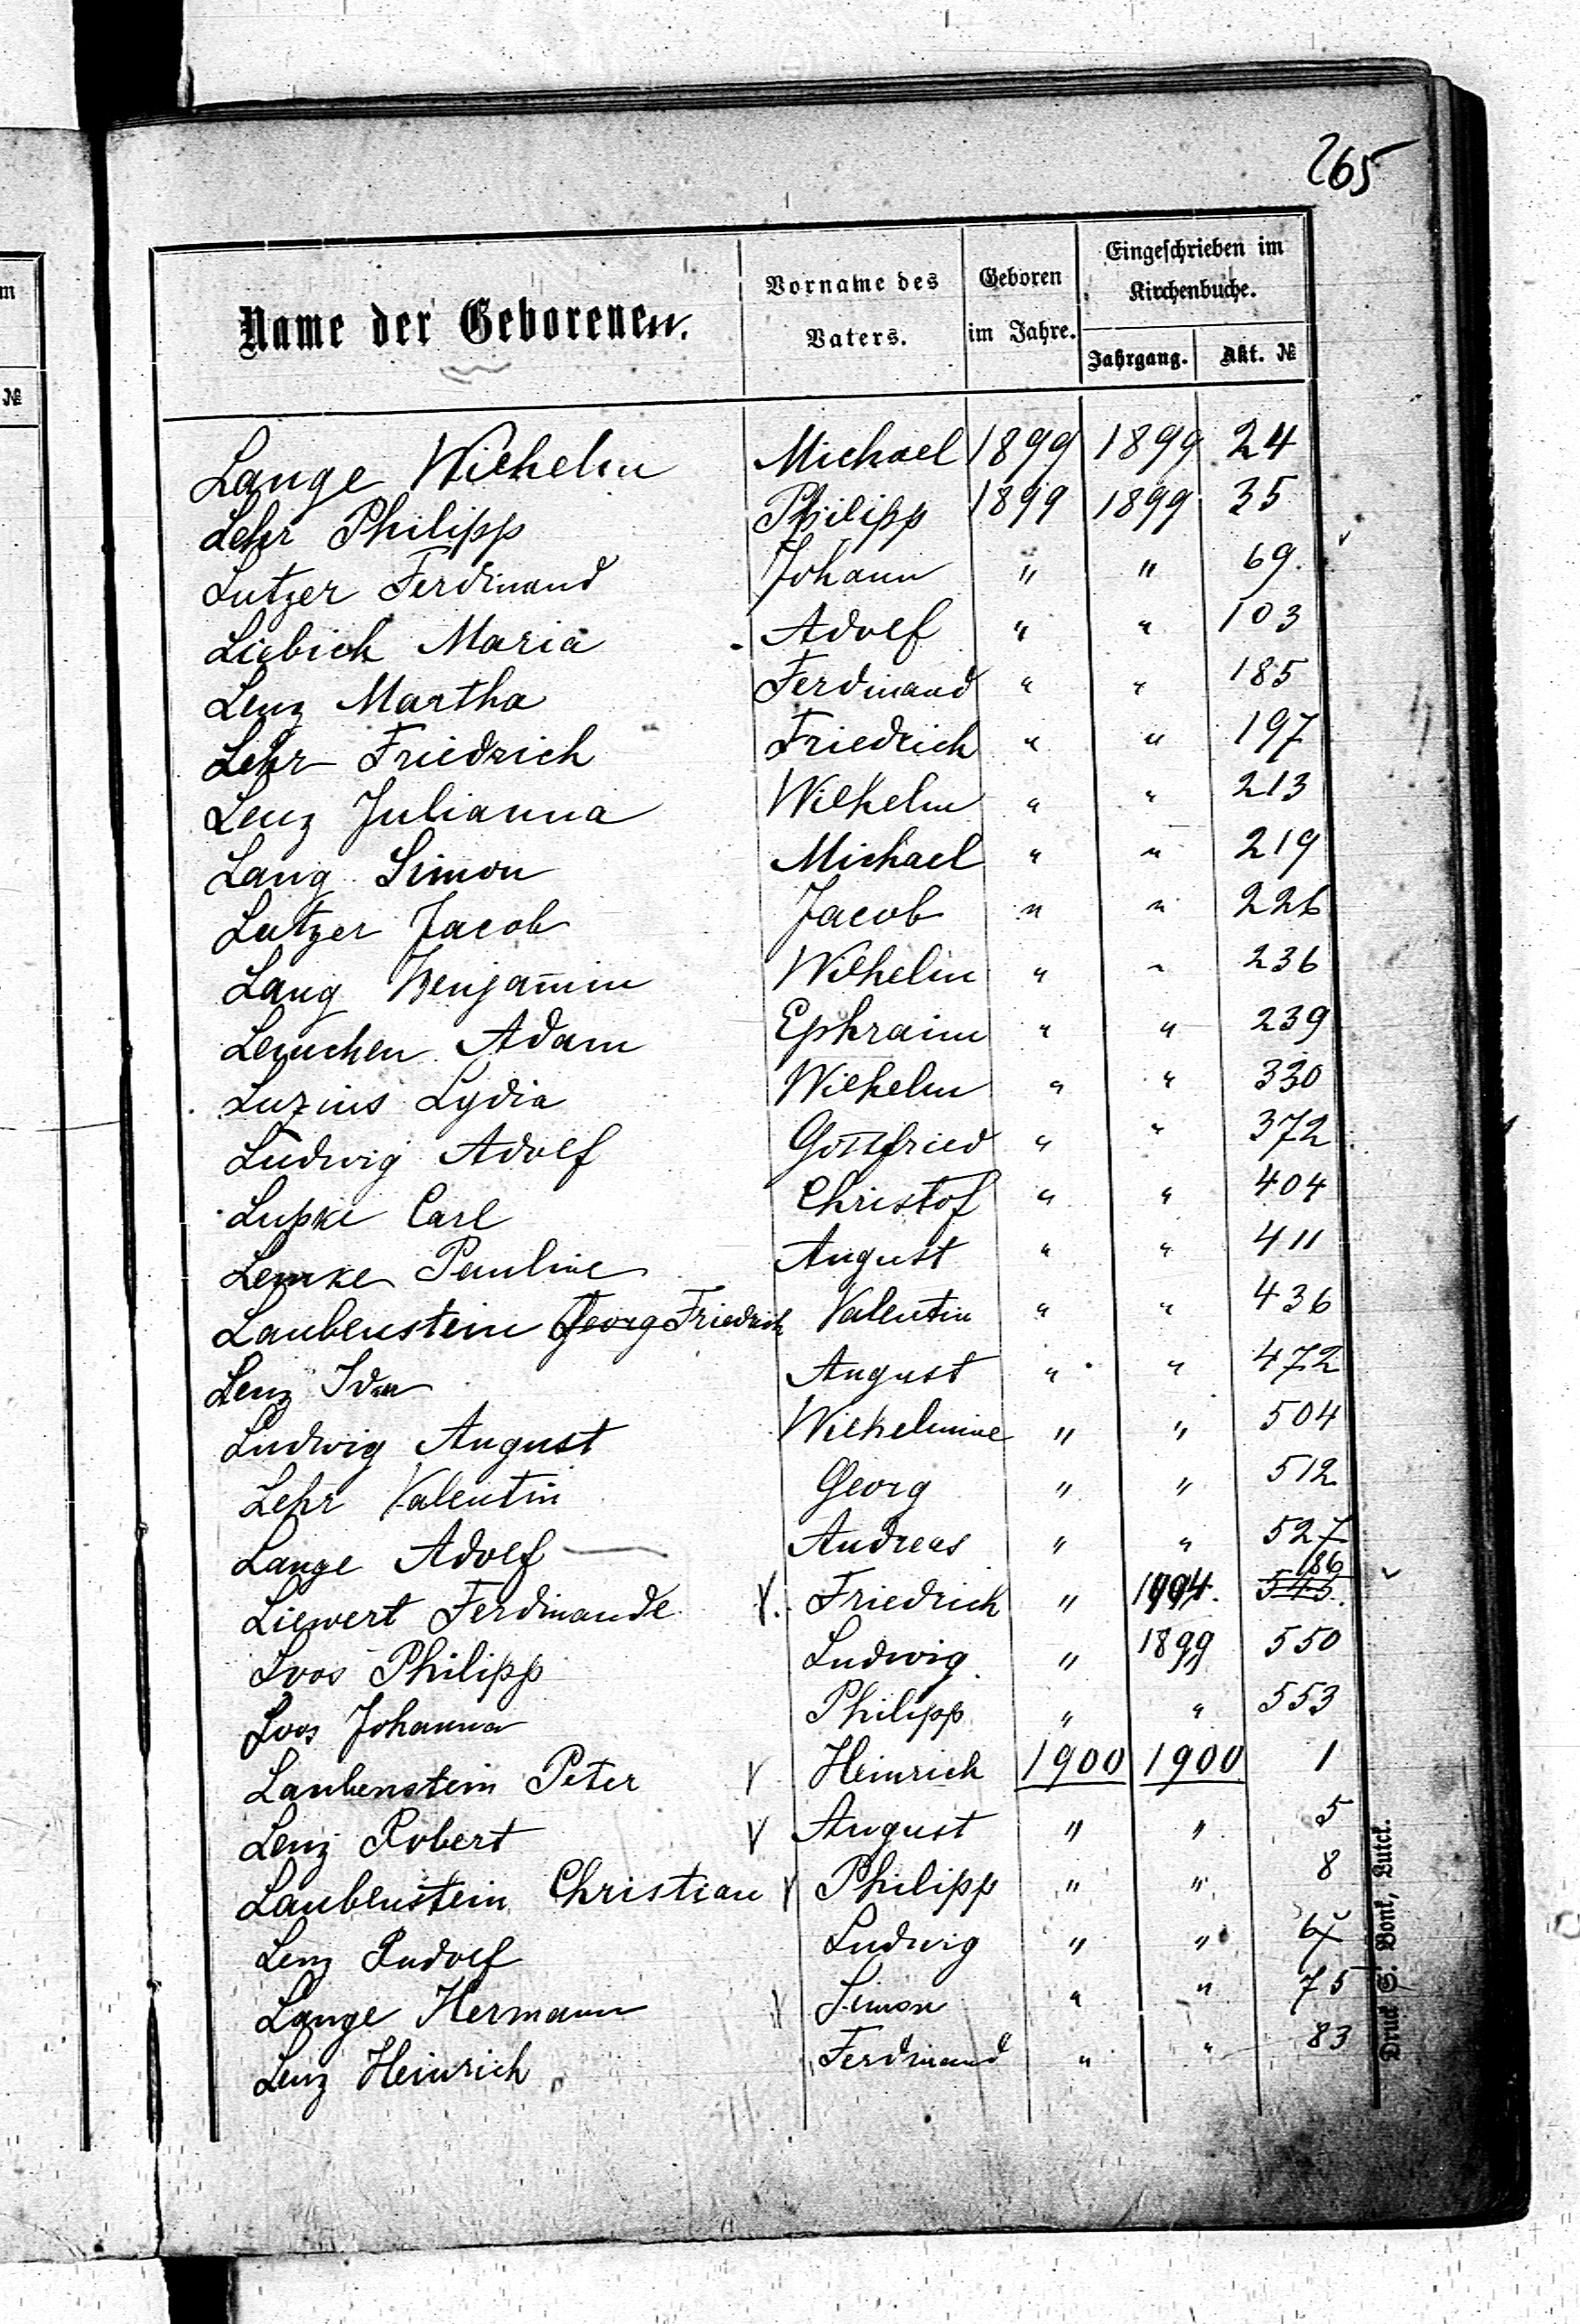 265
Name der Geborenen. Vorname des Vaters. Geboren im Jahre. Eingeschrieben im Kirchenbuche.
Jahrgang. Akt. №
Lange Wilhelm Michael 1899 1899 24
Lehr Philipp Philipp 1899 1899 35
Lutzer Ferdinand Johann " " 69.
Liebich Maria Adolf " " 103
Lenz Martha Ferdinand " " 185
Lehr Friedrich Friedrich " " 197
Lenz Julianna Wilhelm " " 213
Lang Simon Michael " " 219
Lutzer Jacob Jacob " " 226
Lang Benjamin Wilhelm " " 236
Lemchen Adam Ephraim " " 239
Luzius Lydia Wilhelm " " 330
Ludwig Adolf Gottfried " " 372
Lupke Carl Christof " " 404
Lemke Pauline August " " 411
Laubenstein Georg Friedrich Valentin " " 436
Lenz Ida August " " 472
Ludwig August Wilhelmine " " 504
Lehr Valentin Georg " " 512
Lange Adolf Andreas " " 527
Liewert Ferdinande Friedrich " 1994. 545. 186
Loos Philipp Ludwig " 1899 550
Loos Johanna Philipp " " 553
Laubenstein Peter Heinrich 1900 1900 1
Lenz Robert August " " 5
Laubenstein Christian Philipp " " 8
Lenz Rudolf Ludwig " "
Lange Hermann Simon " " 75
Lenz Heinrich Ferdinand " " 83
Druck S. Bonk, Lutck.
m
№